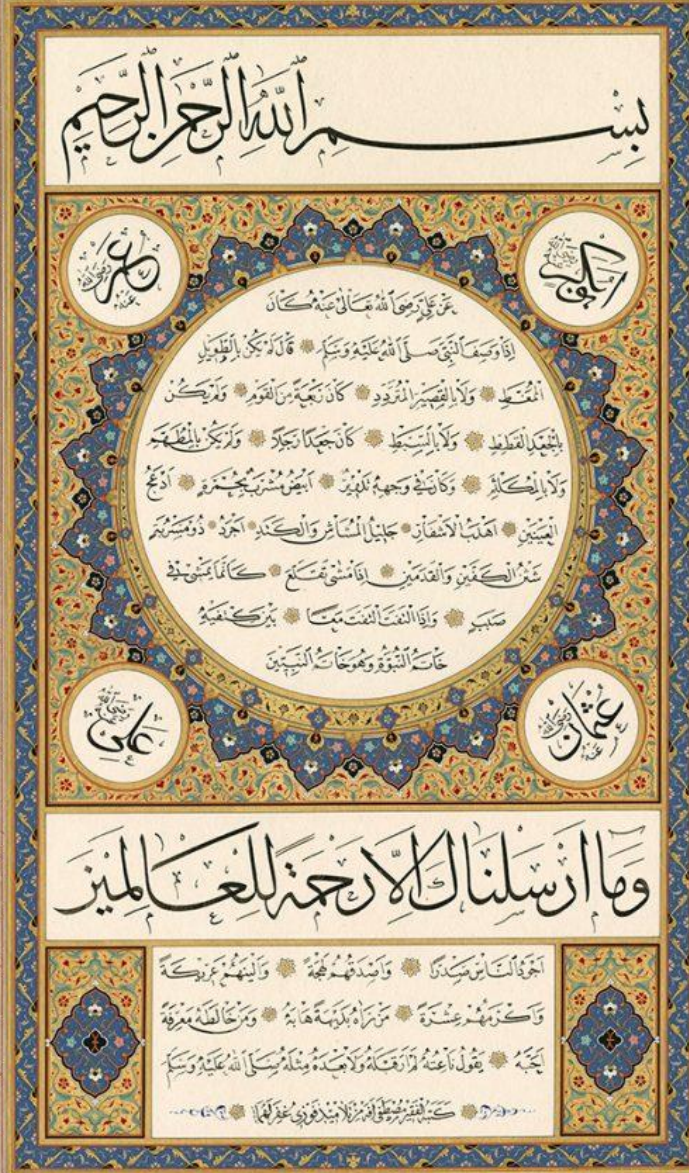 بِسْمِ اللّٰهِ الرَّحْمٰنِ الرَّحِيمِ
ابوبكر رضي الله عنه
عمر رضي الله عنه
عَنْ عَلِيٍّ رَضِيَ اللّٰهُ تَعَالٰى عَنْهُ كَانَ
اِذَا وَصَفَ النَّبِيَّ صَلَّى اللّٰهُ عَلَيْهِ وَسَلَّمَ قَالَ لَمْ يَكُنْ بِالطَّوِيلِ
الْمُمَّغِطِ وَلَا بِالْقَصِيرِ الْمُتَرَدِّدِ كَانَ رَبْعَةً مِنَ الْقَوْمِ وَلَمْ يَكُنْ
بِالْجَعْدِ الْقَطَطِ وَلَا بِالسَّبِطِ كَانَ جَعْدًا رَجِلًا وَلَمْ يَكُنْ بِالْمُطَهَّمِ
وَلَا بِالْمُكَلْثَمِ وَكَانَ فِي وَجْهِهِ تَدْوِيرٌ اَبْيَضُ مُشْرَبٌ بِحُمْرَةٍ اَدْعَجُ
الْعَيْنَيْنِ اَهْدَبُ الْاَشْفَارِ جَلِيلُ الْمُشَاشِ وَالْكَتَدِ اَجْرَدُ ذُو مَسْرُبَةٍ
شَثْنُ الْكَفَّيْنِ وَالْقَدَمَيْنِ اِذَا مَشٰى تَقَلَّعَ كَاَنَّمَا يَمْشِي فِي
صَبَبٍ وَاِذَا الْتَفَتَ الْتَفَتَ مَعًا بَيْنَ كَتِفَيْهِ
خَاتَمُ النُّبُوَّةِ وَهُوَ خَاتَمُ النَّبِيِّينَ
عثمان رضي الله عنه
علي رضي الله عنه
وَمَا اَرْسَلْنَاكَ اِلَّا رَحْمَةً لِلْعَالَمِينَ
اَجْوَدُ النَّاسِ صَدْرًا وَاَصْدَقُهُمْ لَهْجَةً وَاَلْيَنُهُمْ عَرِيكَةً
وَاَكْرَمُهُمْ عِشْرَةً مَنْ رَاٰهُ بَدِيهَةً هَابَهُ وَمَنْ خَالَطَهُ مَعْرِفَةً
اَحَبَّهُ يَقُولُ نَاعِتُهُ لَمْ اَرَ قَبْلَهُ وَلَا بَعْدَهُ مِثْلَهُ صَلَّى اللّٰهُ عَلَيْهِ وَسَلَّمَ
كتبه الفقير مصطفى من تلاميذ فوزي غفر لهما